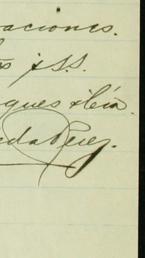 aciones.
s y S.S.
gues & Cía.
da Pérez.